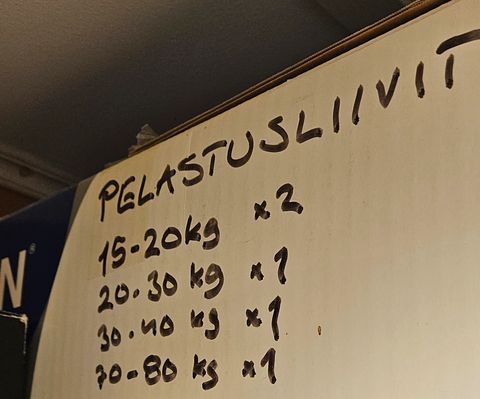 PELASTUSLIIVIT
15-20kg x2
20-30 kg x1
30-40 kg x1
70-80 kg x1
N®